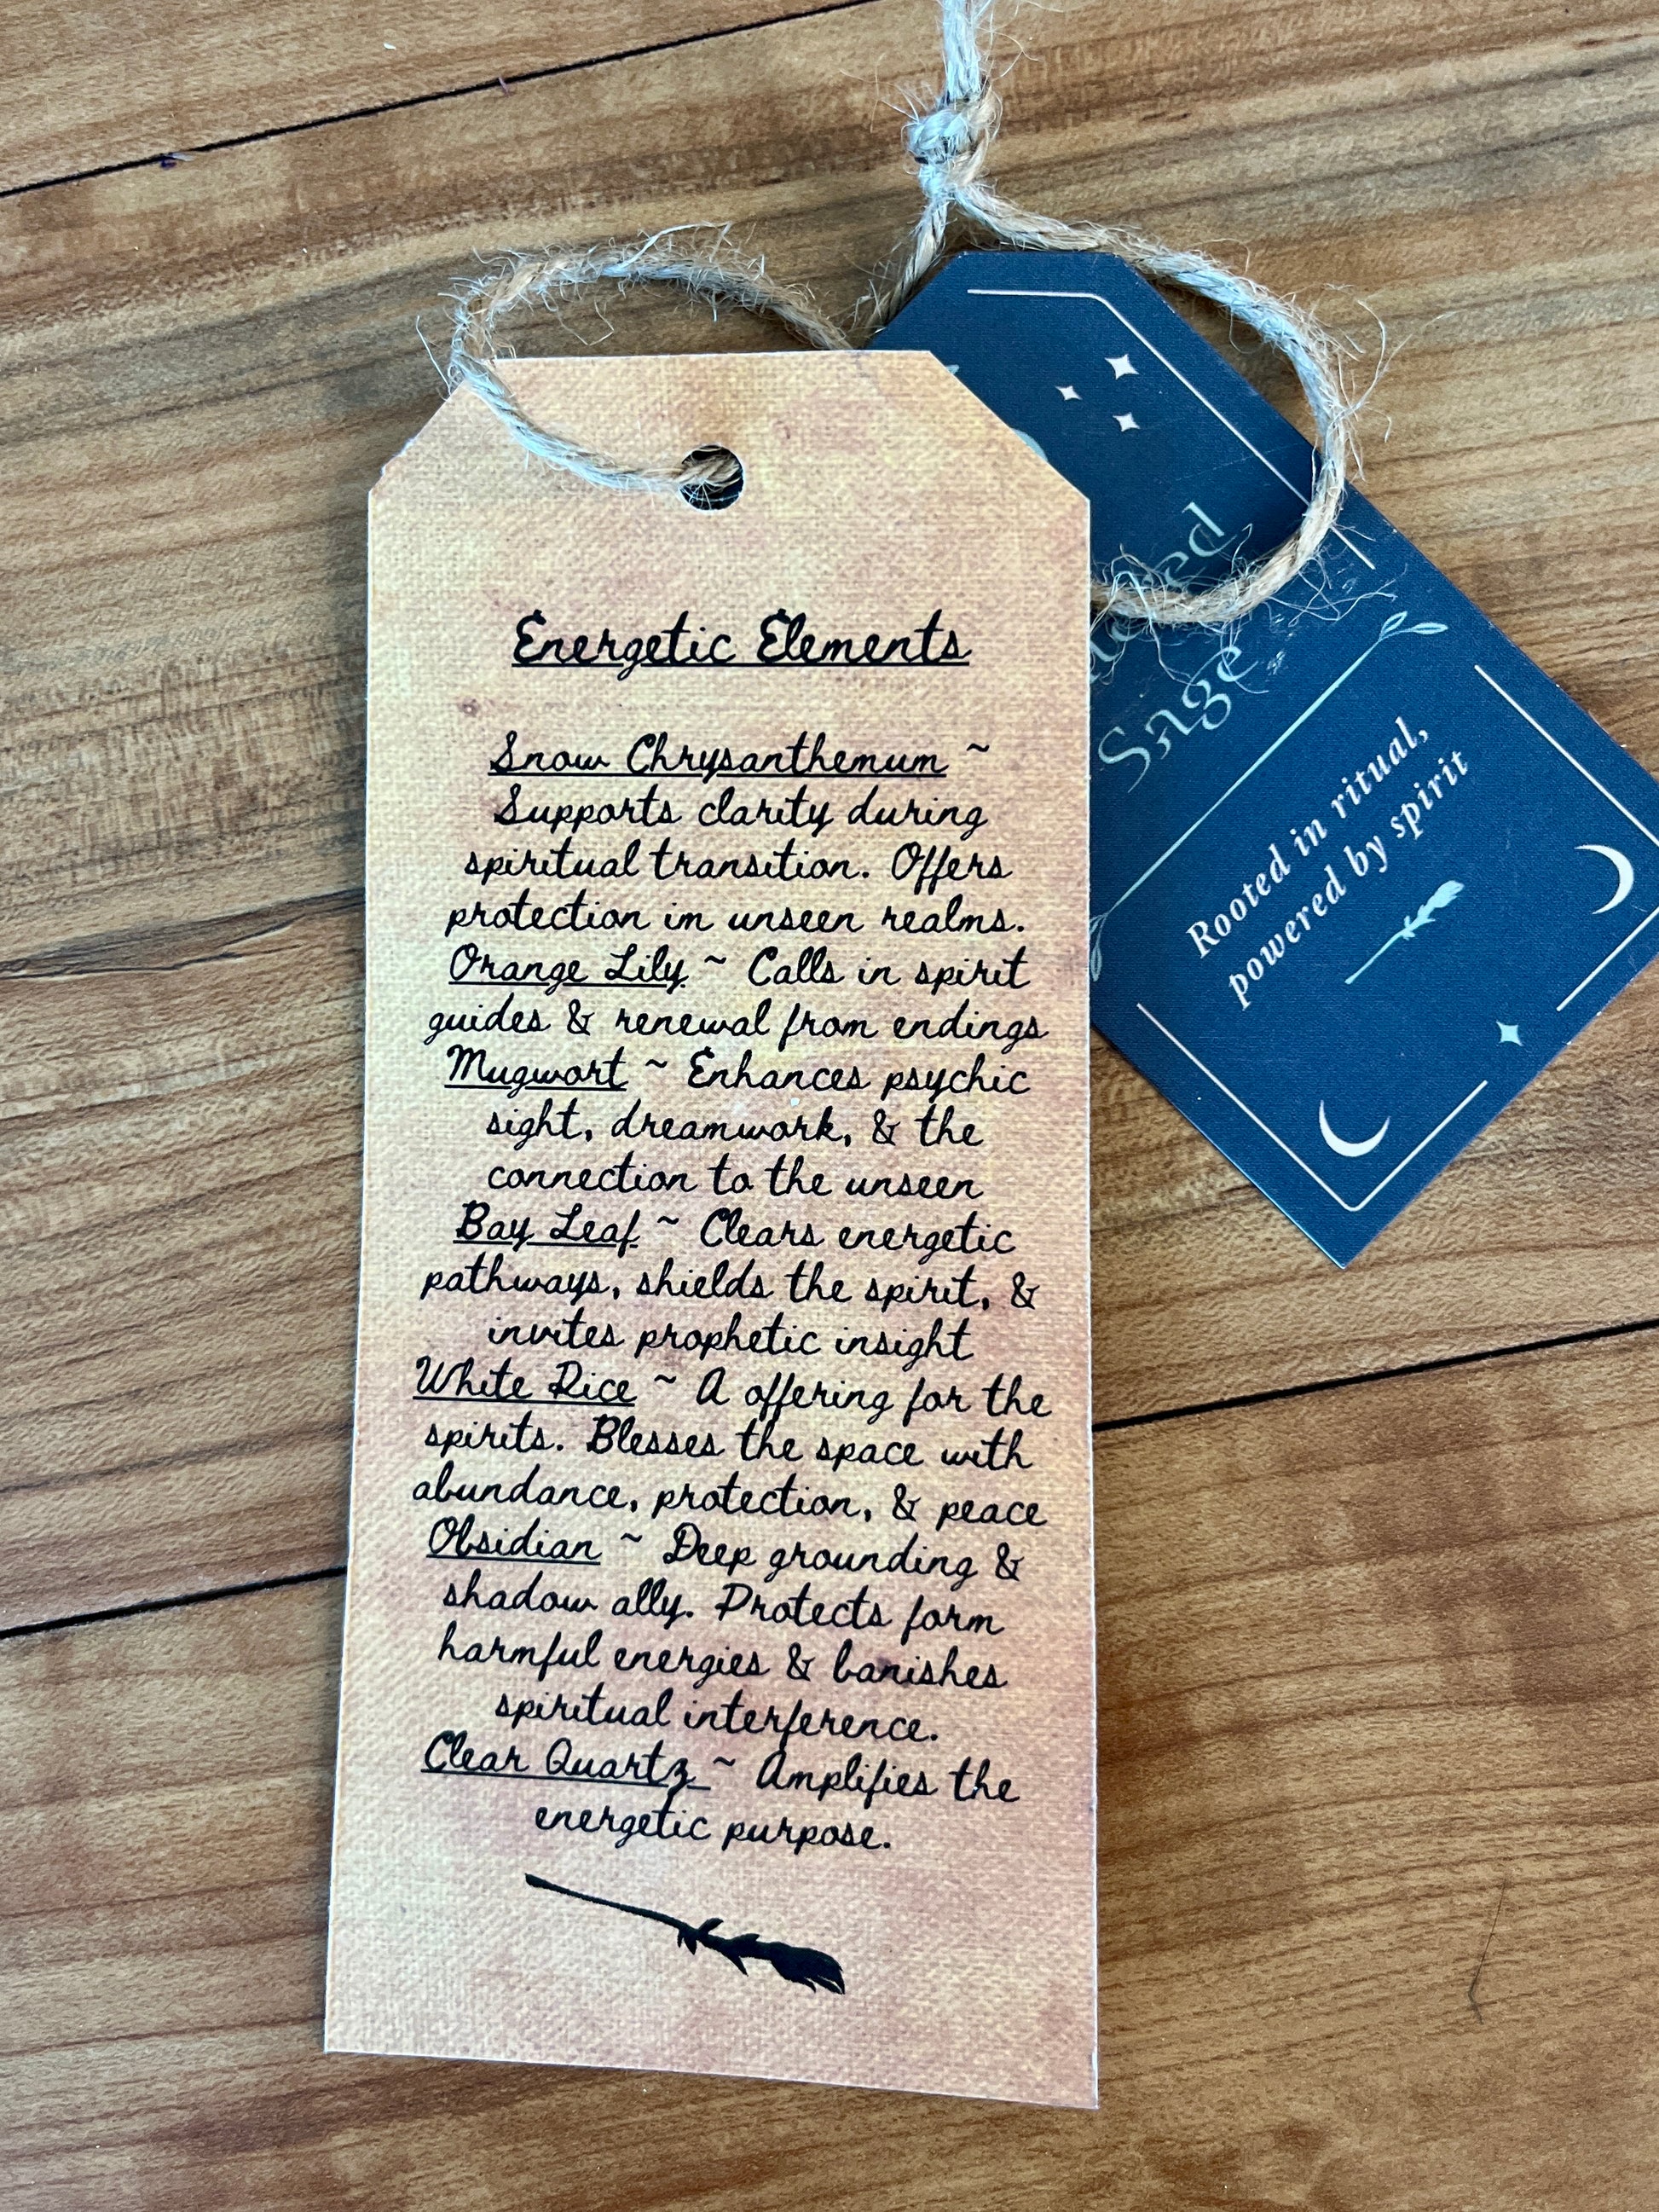 Energetic Elements
Snow Chrysanthemum ~
Supports clarity during
spiritual transition. Offers
protection in unseen realms.
Orange Lily ~ Calls in spirit
guides & renewal from endings
Mugwort ~ Enhances psychic
sight, dreamwork, & the
connection to the unseen
Bay Leaf ~ Clears energetic
pathways, shields the spirit, &
invites prophetic insight
White Rice ~ A offering for the
spirits. Blesses the space with
abundance, protection, & peace
Obsidian ~ Deep grounding &
shadow ally. Protects form
harmful energies & banishes
spiritual interference.
Clear Quartz ~ Amplifies the
energetic purpose.
Sage
Rooted in ritual,
powered by spirit